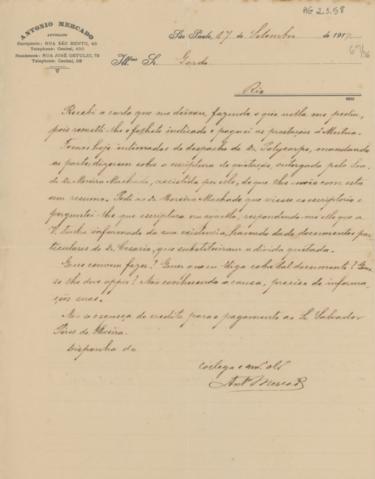 AG 2.3.58
ANTONIO MERCADO
ADVOGADO
Escriptorio: RUA SÃO BENTO, 45
Telephone: Central,
Residencia: RUA JOSÉ GETULIO, 75
Telephone: Central, 58
São Paulo, 27 de Setembro de 191
Illmo Sr. Gordo
Rio
Recebi a carta que me deixou, fazendo o que nella me pediu,
pois remetti-lhe o folheto indicado e paguei as prestações á Mutua.
Fomos hoje intimados do despacho do Dr. Polycarpo, mandando
as partes dizerem sobre a escriptura de quitação, entregue pelo
Dr. Moreira Machado, assistida por elle, do que lhe com esta
um resumo. Pedi ao Dr. Moreira Machado que viesse ao escriptorio e
perguntei-lhe que escriptura era aquella, respondendo-me elle que o
V. tinha informado da sua existencia, tratando de documentos par-
ticulares do Dr. Cesario, que substituiram a divida quitada.
Que convem fazer? Quer que eu diga sobre tal documento?
Não conhecendo a causa, preciso de informa-
ções suas.
de credito para o pagamento ao Sr. Salvador
Pires de Oliveira.
Disponha do
collega e am.º
Ant. Mercado